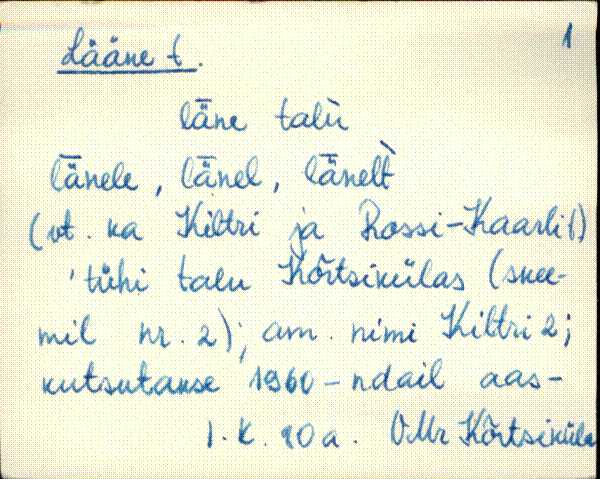 1
Lääne t.
lǟne talù
lǟnele, lǟnel, lǟnelt̀
(vt. ka Kiltri ja Rossi-Kaarli t)
'tühi talu Kõrtsikülas (skee-
mil nr. 2); am. nimi Kiltri 2;
kutsutakse 1960-ndail aas-
I. K. 80 a. VMr Kõrtsiküla